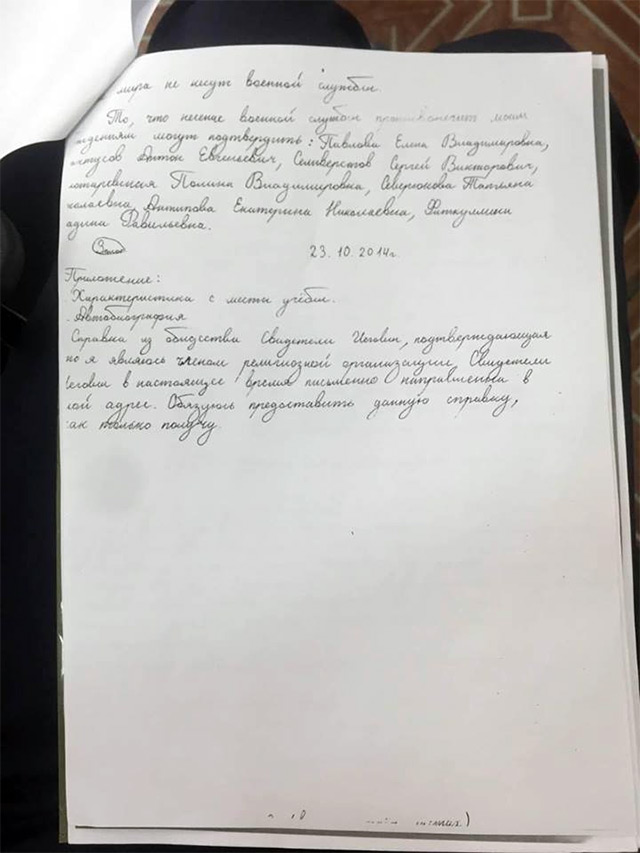 мира не несут военной службы.
То, что несение военной службы противоречит моим
убеждениям могут подтвердить: Павлова Елена Владимировна,
Антон Евгеньевич, Селиверстов Сергей Викторович,
Полина Владимировна, Северюкова Татьяна
Антипова Екатерина Николаевна, Фаткуллина
Равильевна.
23.10.2014г.
Приложение:
Характеристика с места учёбы.
Автобиография
Справка из общества Свидетели Иеговы, подтверждающая
я являюсь членом религиозной организации Свидетели
Иеговы в настоящее время письменно направленна в
мой адрес. Обязуюсь предоставить данную справку,
как только получу.